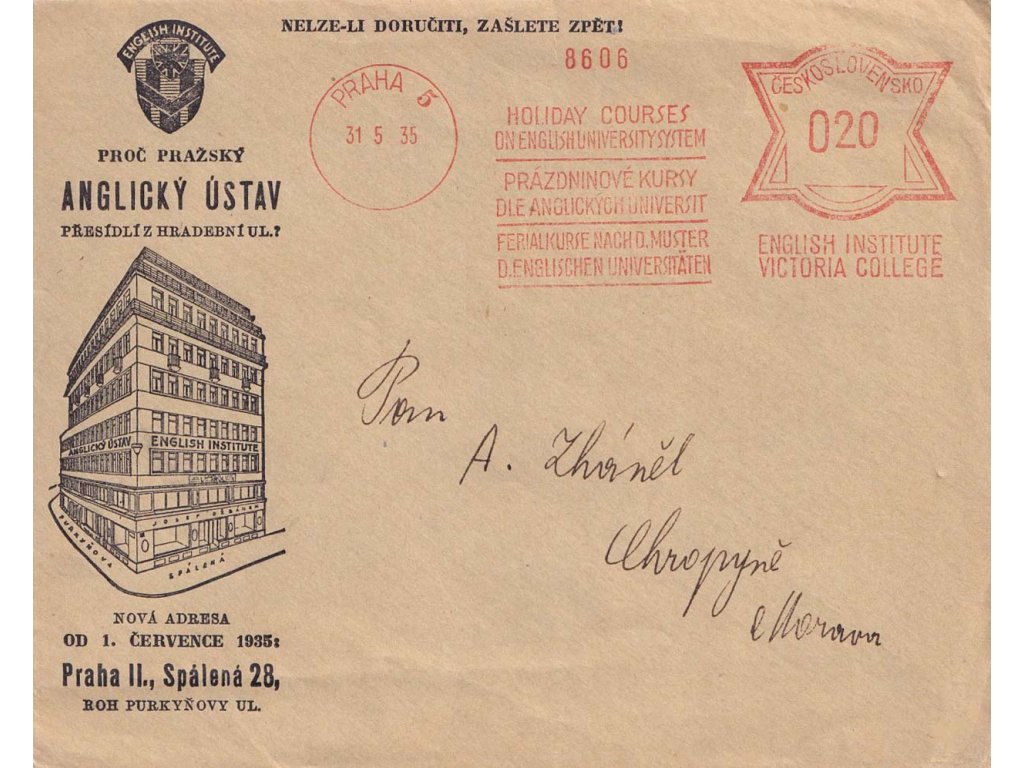 NELZE-LI DORUČITI, ZAŠLETE ZPĚT!
ENGLISH INSTITUTE
PROČ PRAŽSKÝ
ANGLICKÝ ÚSTAV
PŘESÍDLÍ Z HRADEBNÍ UL.?
ANGLICKÝ ÚSTAV
ENGLISH INSTITUTE
PURKYŇOVA
SPÁLENÁ
NOVÁ ADRESA
OD 1. ČERVENCE 1935:
Praha II., Spálená 28,
ROH PURKYŇOVY UL.
PRAHA 5
31 5 35
8606
HOLIDAY COURSES
ON ENGLISH UNIVERSITY SYSTEM
PRÁZDNINOVÉ KURSY
DLE ANGLICKÝCH UNIVERSIT
FERIALKURSE NACH D. MUSTER
D. ENGLISCHEN UNIVERSITÄTEN
ČESKOSLOVENSKO
020
ENGLISH INSTITUTE
VICTORIA COLLEGE
Pan
A. Zháněl
Chropyně
Morava